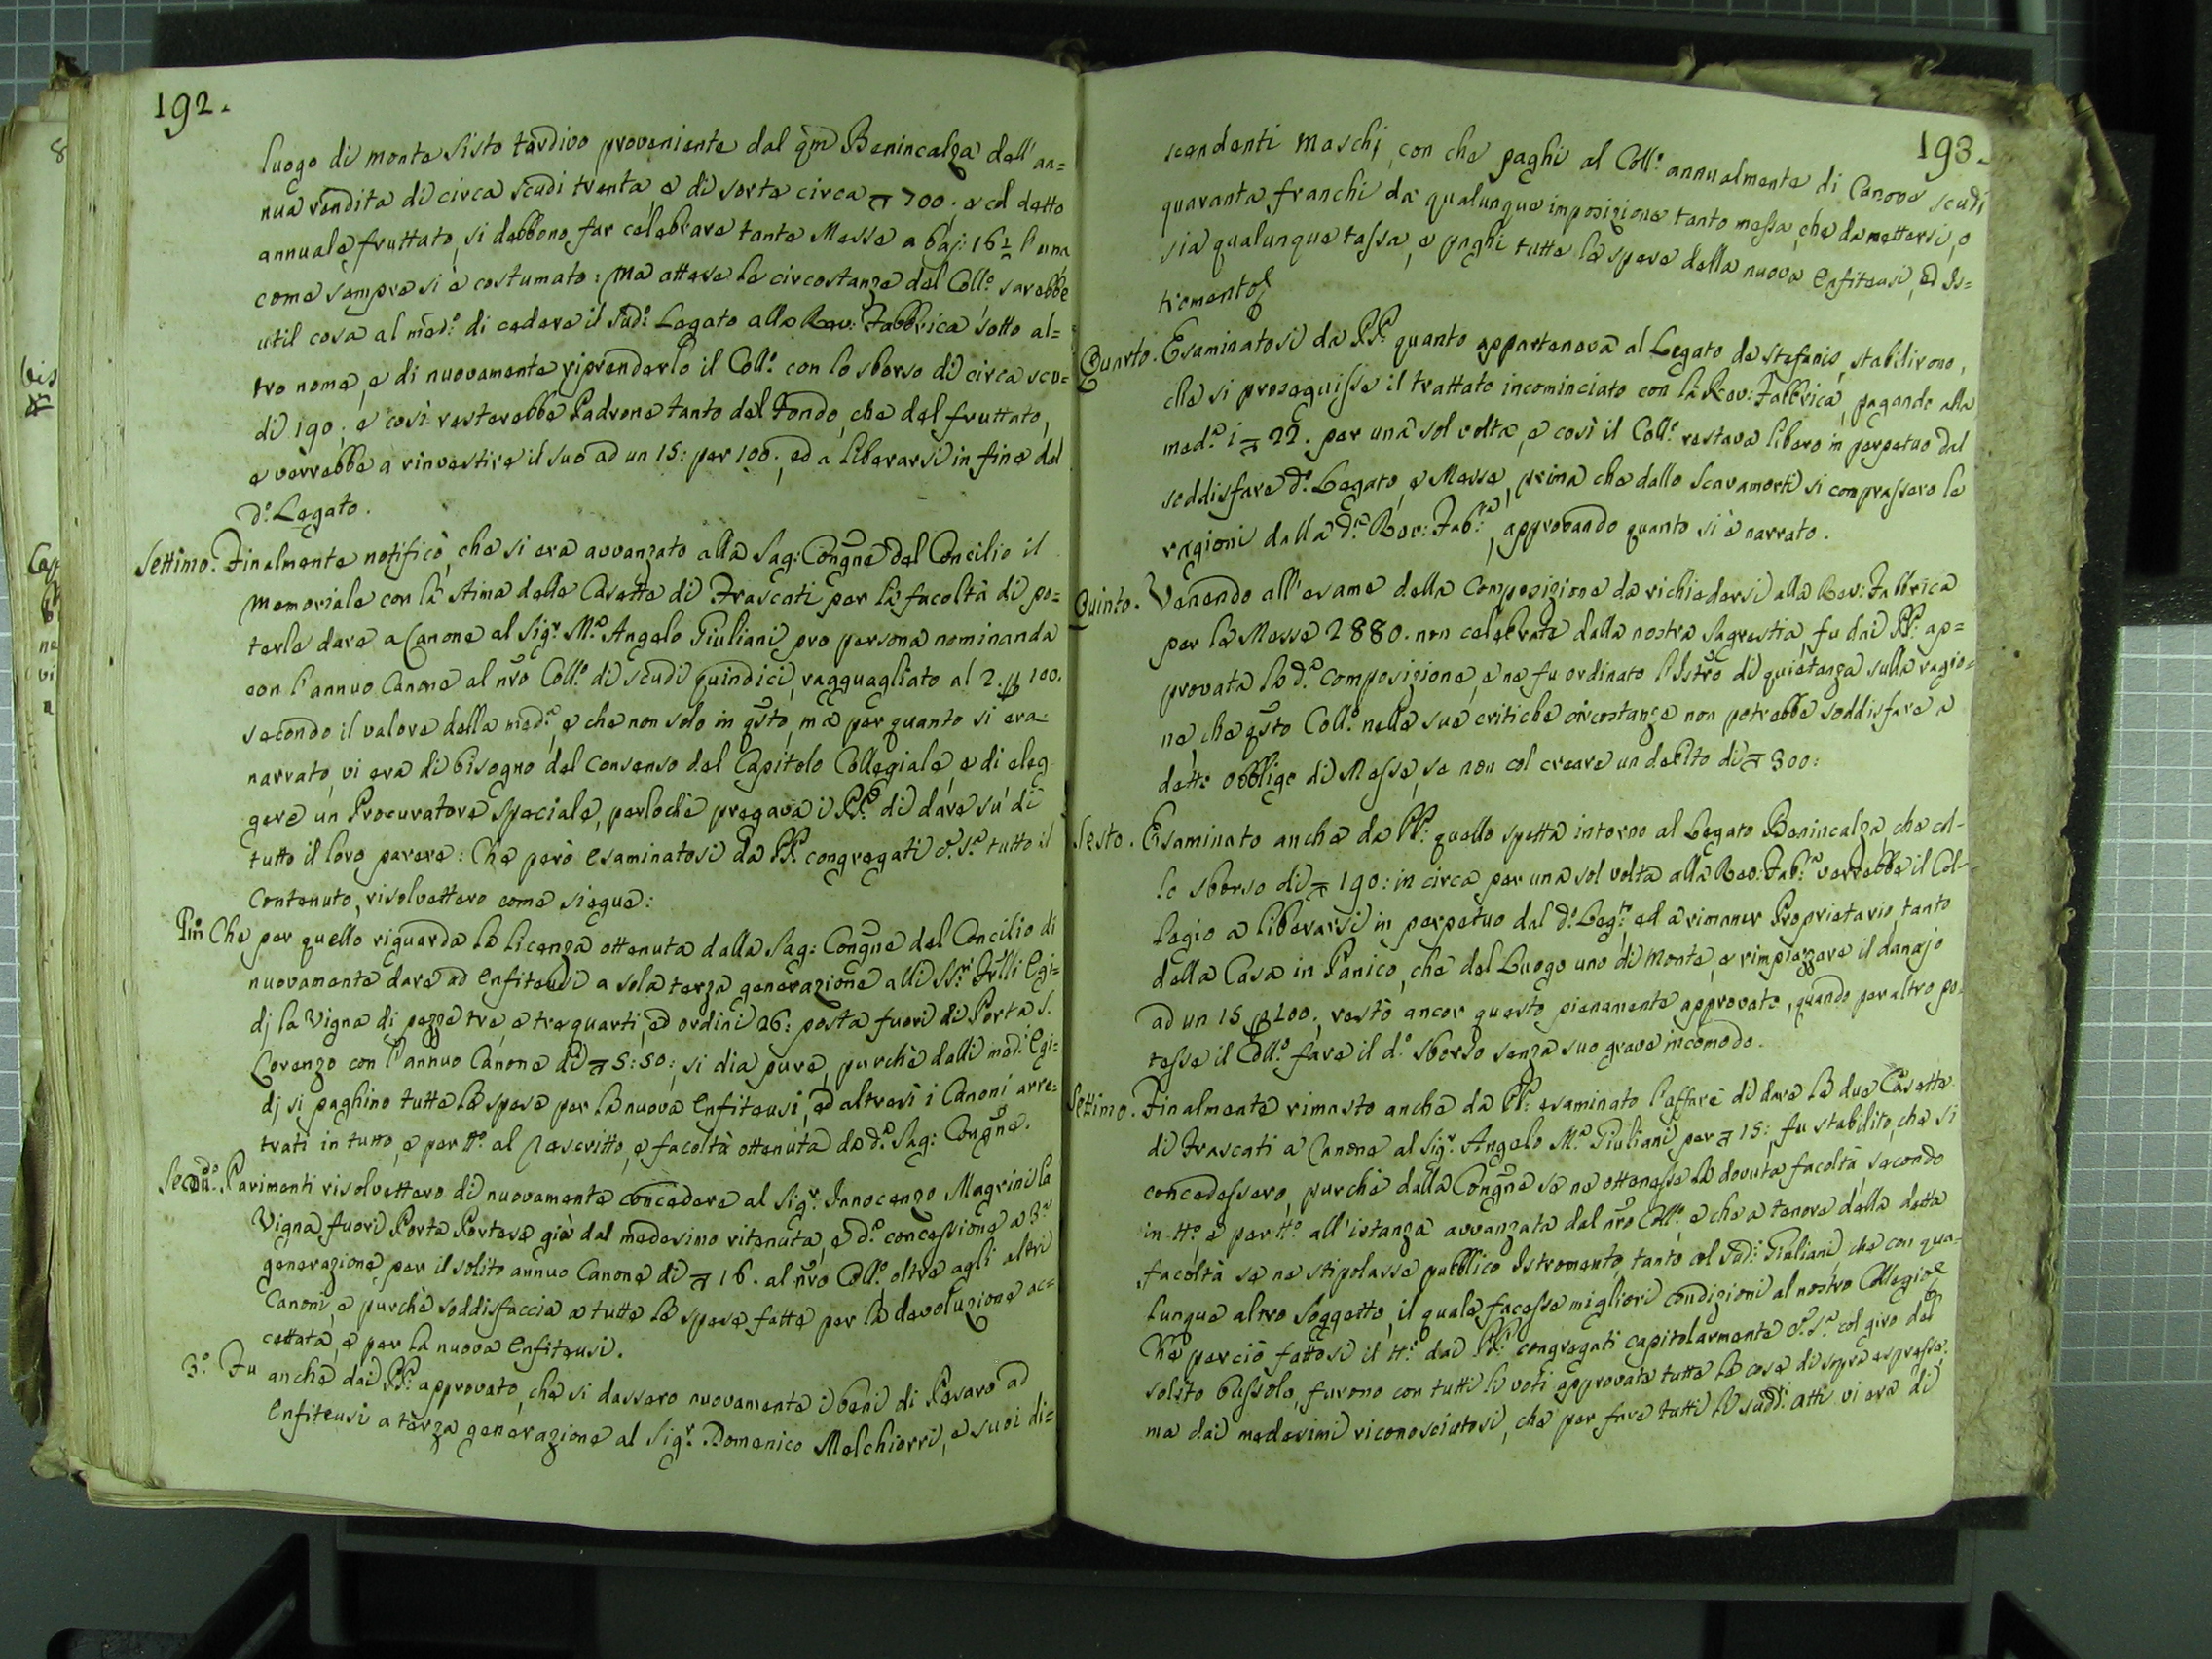 192.
luogo di monte Sisto tardivo proveniente dal qm̄ Benincalza dell'an=
nua rendita di circa scudi trenta, e di sorte circa 700; e col detto
annuale fruttato, si debbono far celebrare tante Messe a baj: 16½ l'una
come sempre si è costumato: Ma attese le circostanze del Coll.º sarebbe
util cosa al med.º di cedere il sud.º Legato alla Rev: Fabbrica sotto al=
tro nome, e di nuovamente riprenderlo il Coll.º con lo sborso di circa scu=
di 190; e così resterebbe Padrone tanto del Fondo, che del fruttato,
e verrebbe a rinvestire il suo ad un 15: per 100., ed a liberarsi in fine del
d.º Legato.
Settimo. Finalmente notificò, che si era avvanzato alla Sag: Congñe del Concilio il
Memoriale con la stima delle Casette di Frascati per la facoltà di po=
terle dare a Canone al Sig.r M.a Angelo Giuliani pro persona nominanda
con l'annuo Canone al nr̃o Coll.º di scudi quindici, ragguagliato al 2. p 100.
secondo il valore della med.a, e che non solo in qsto, ma per quanto si era
narrato, vi era di bisogno del consenso del Capitolo Collegiale, e di eleg
gere un Procuratore speciale, perlochè pregava i PP. di dare su di
tutto il loro parere: Che però esaminatosi da PP. congregati c.s.a tutto il
Contenuto, risolvettero come siegue:
Pm̃ Che per quello riguarda la licenza ottenuta dalla Sag: Congñe del Concilio di
nuovamente dare ad Enfiteusi a sola terza generazione alli SS.ri Fr̃lli Egi=
dj la Vigna di pezze tre, e tre quarti, ed ordini 26: posta fuori di Porta S.
Lorenzo con l'annuo Canone di 5:50:, si dia pure, purchè dalli med.i Egi=
dj si paghino tutte le spese per la nuova Enfiteusi, ed altresì i Canoni arre=
trati in tutto, e per tt.º al Rescritto, e facoltà ottenuta da d.a Sag: Congñe.
Secdõ. Parimenti risolvettero di nuovamente concedere al Sig.r Innocenzo Magrini la
Vigna fuori Porta Portese già dal medesimo ritenuta, e d.a concessione a 3.a
generazione, per il solito annuo Canone di 16. al nr̃o Coll.º, oltre agli altri
Canoni, e purchè soddisfaccia a tutte le spese fatte per la devoluzione ac=
cettata, e per la nuova Enfiteusi.
3.º Fu anche dai PP: approvato, che si dassero nuovamente i beni di Pesaro ad
Enfiteusi a terza generazione al Sig.r Domenico Melchiorri, e suoi di=
193.
scendenti Maschi, con che paghi al Coll.º annualmente di Canone scudi
quaranta, franchi da qualunque imposizione tanto messa, che da mettersi, o
sia qualunque tassa, e paghi tutte le spese della nuova Enfiteusi, ed Is=
tromento
Quarto. Esaminatosi da PP. quanto apparteneva al Legato de Stefanis, stabilirono,
che si proseguisse il trattato incominciato con la Rev: Fabbrica, pagando alla
med.a i 22. per una sol volta, e così il Coll.º restava libero in perpetuo dal
soddisfare d.º Legato, e Messe, prima che dallo Scavamorti si comprassero le
ragioni dalla d.a Rev: Fab.ca, approvando quanto si è narrato.
Quinto. Venendo all'esame della Composizione da richiedersi alla Rev: Fabbrica
per le Messe 2880. non celebrate dalla nostra Sagrestia, fu dai PP: ap=
provata la d.a composizione, e ne fu ordinato l'Istrõ di quietanza sulla ragio=
ne, che qsto Coll.º nelle sue critiche circostanze non potrebbe soddisfare a
detto obbligo di Messe, se non col creare un debito di 300:
Sesto. Esaminato anche da PP: quello spetta intorno al Legato Benincalza, che col=
lo sborso di 190: in circa per una sol volta alla Rev: Fab.ca verrebbe il Col=
legio a liberarsi in perpetuo dal d.º Leg.to, ed a rimaner Proprietario, tanto
della Casa in Panico, che del Luogo uno di Monte, e rimpiazzare il danajo
ad un 15 p 100., restò ancor questo pienamente approvato, quando per altro po=
tesse il Coll.º fare il d.º sborso senza suo grave incomodo.
Settimo. Finalmente rimasto anche da PP: esaminato l'affare di dare le due Casette
di Frascati a Canone al Sig.r Angelo M.a Giuliani per 15:, fu stabilito, che si
concedessero, purchè dalla Congñe se ne ottenesse la dovuta facoltà, secondo
in tt.º, e per tt.º all'istanza avvanzata dal nr̃o Coll.º, e che a tenore della detta
facoltà se ne stipolasse pubblico Istromento, tanto col sud.º Giuliani, che con qua=
lunque altro Soggetto, il quale facesse migliori condizioni al nostro Collegio
Che perciò fattosi il tt.º dai PP: congregati capitolarmente c.s.a col giro del
solito bussolo, furono con tutti li voti approvate tutte le cose di sopra espresse:
ma dai medesimi riconosciutosi, che per fare tutti li sudd.i atti vi era di